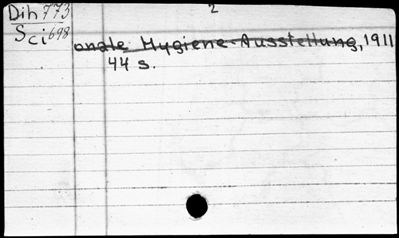 Dih 773 2
Sci 698
onale Hygiene-Ausstellung, 1911
44 s.